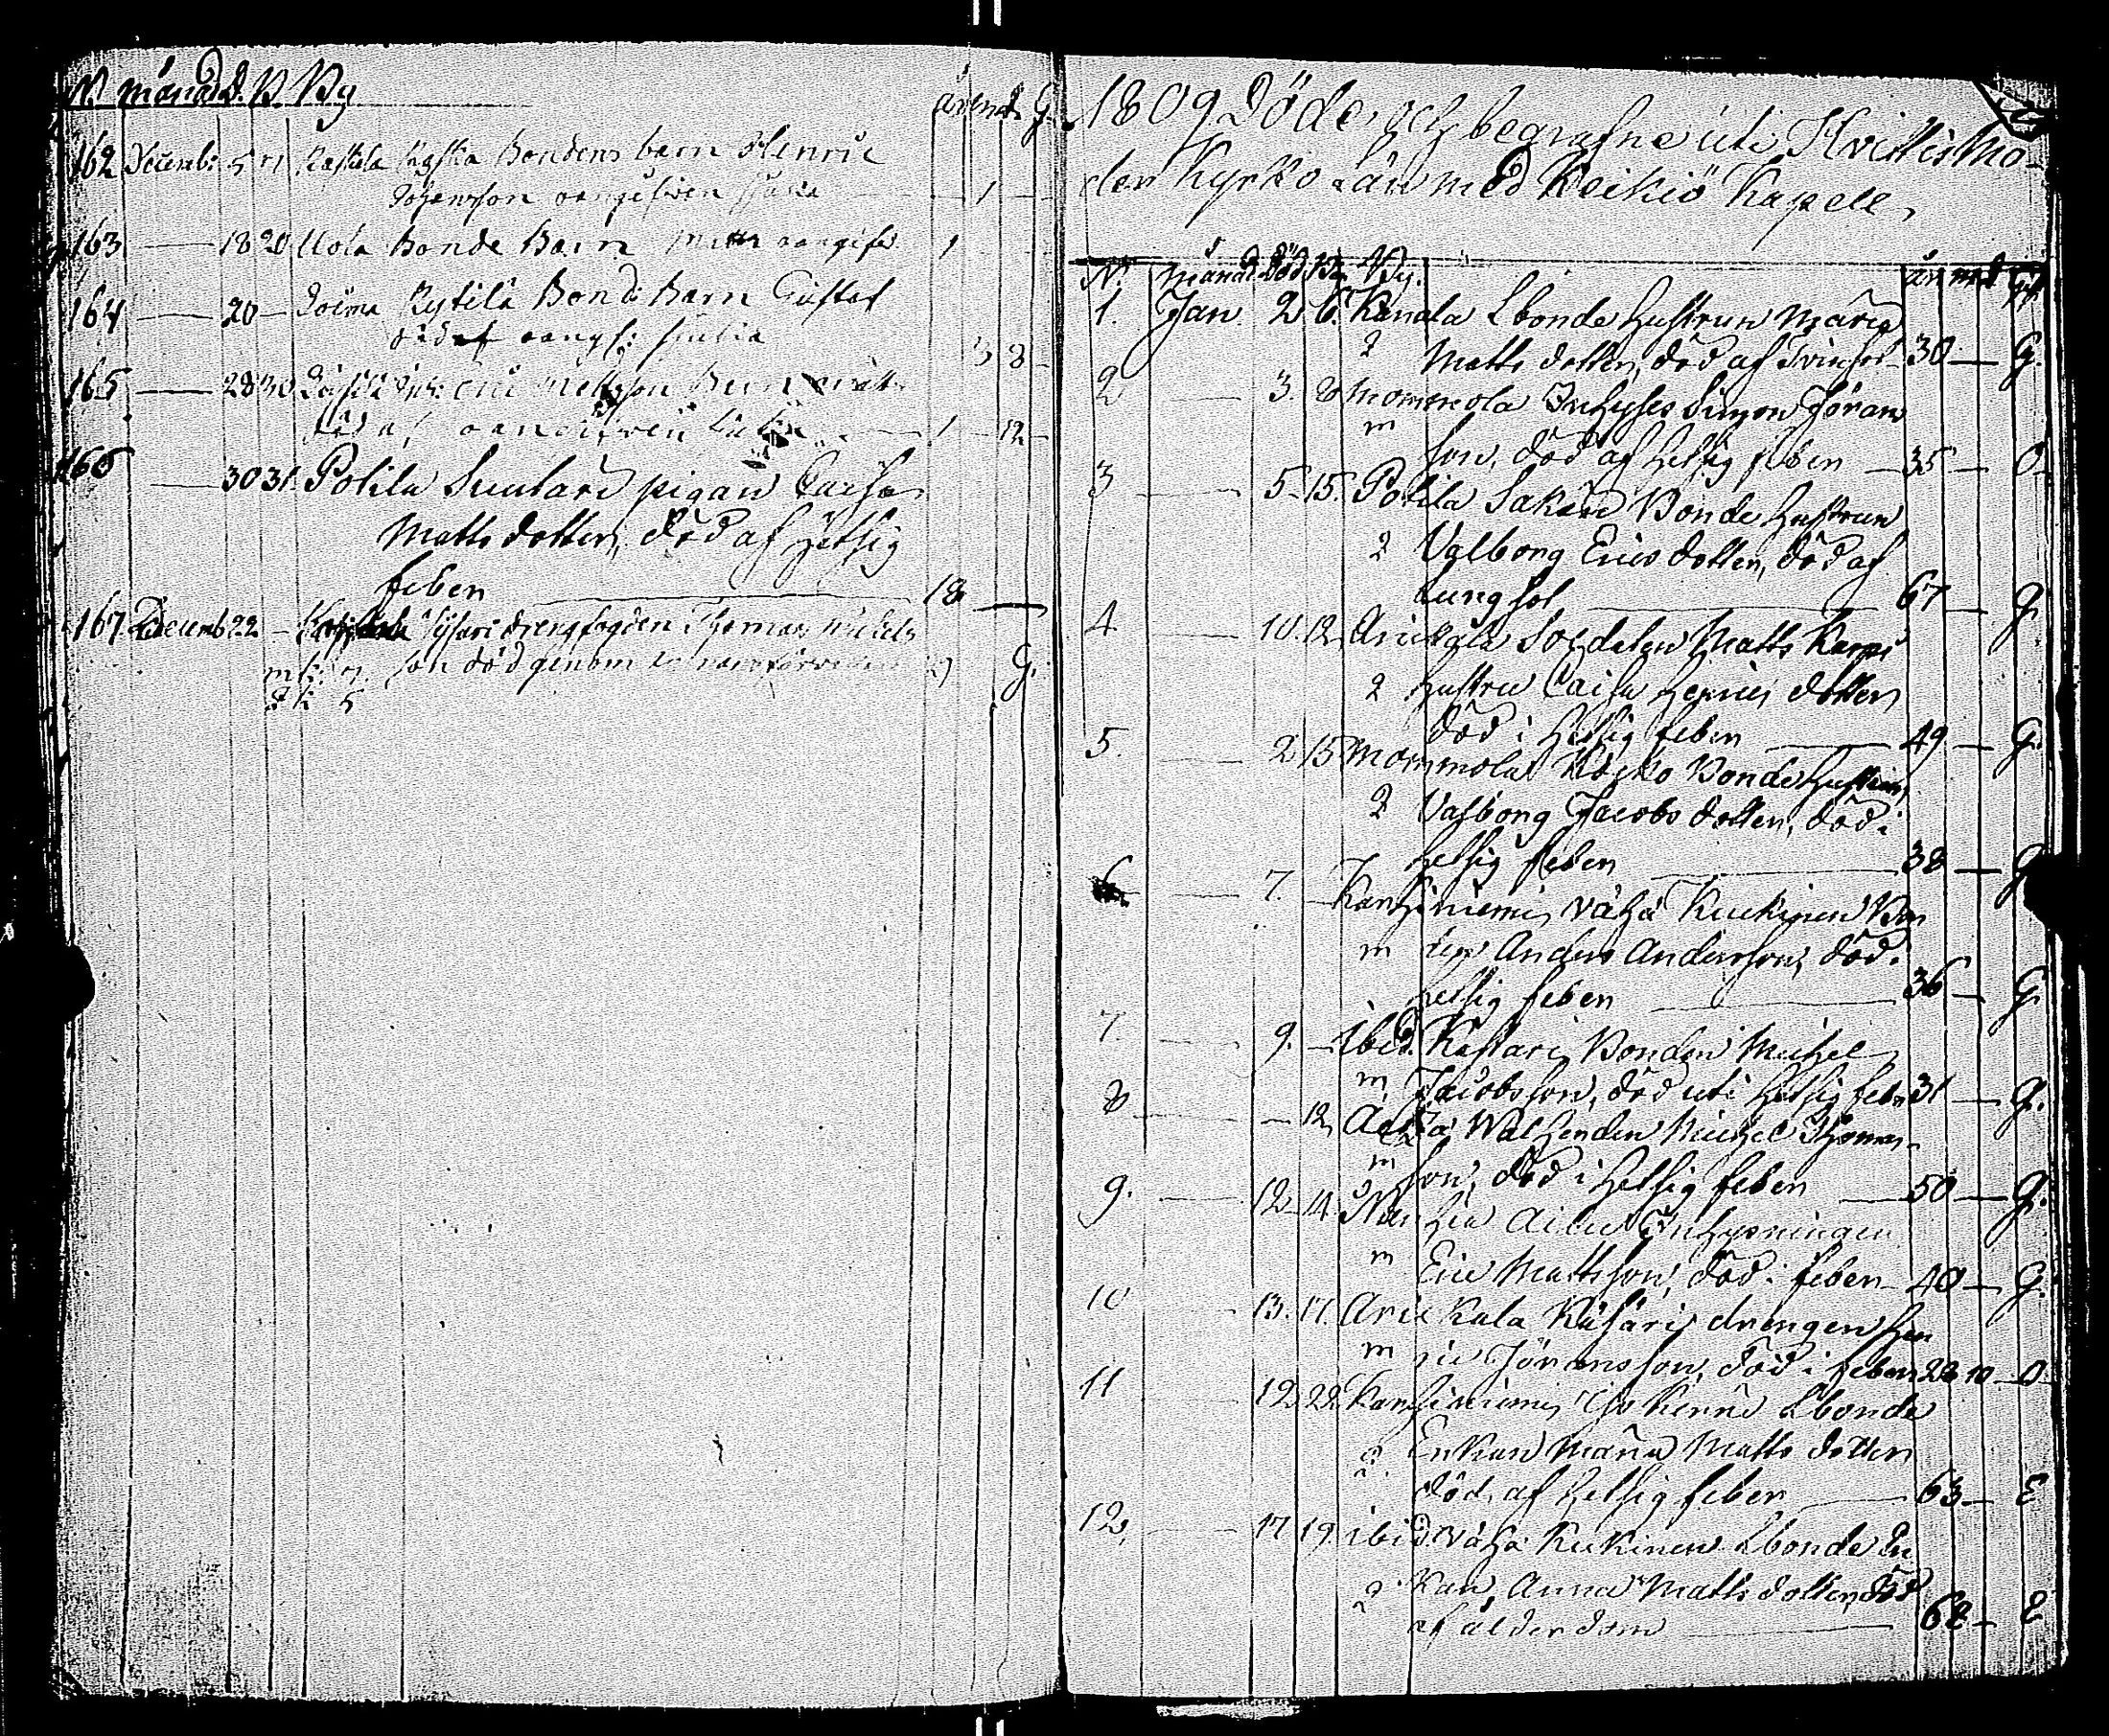 N. månad. D. B. By år mån d. G.
162 Decemb: 5 11 Kastala Kaska Bondens barn Henric
Johansson oangifven siuka — 1 —
163 — 18 20 Uola Bonde Barn Matts oangifv. 1
164 — 20 — Kytilä Bonde Barn Gustaf
död af oangf: siuka 3 8 —
165 — 28 30 Eric Mattsson Barn
död af oangifven siuka — 1 — 12 —
166 — 30 31 Potila Suutari pigan Caisa
Matts dotter, död af hetsig
feber — 18 —
167 Decemb 22 — drengfogden Thomas Michels
m k: son död genom G.
q k 5
1809 Döde och begrafne uti Hvittis Mo-
der Kyrko län med Keikiö Kapell
N. Månad Död Be. By. år md gif
1. Jan. 2 6. Kanala Lbonde hustrun Maria
q Matts dotter, död af Tvinsot 30 — G.
2 — 3. 20 Mommola Inhyses Simon Jöran
m son, död af hetsig feber — 35 — O
3 — 5 15. Potila Sakari Bonde hustrun
q Valborg Erics dotter, död af
Lungsot — 67 — G.
4 — 10. 12 Arickala Soldaten Matts
q hustru Caisa Henrics dotter
död i hetsig feber — 49 — G.
5. — 2 15 Mommola Bonde hustrun
q Valborg Jacobs dotter, död i
hetsig feber — 38 — G
6 — 7. — Karhiniemi Vähä Kuckinen Bon
m den Anders Andersson, död i
hetsig feber — 36 — G
7. — 9. — ibid. Kastari Bonden Michel
m Jacobsson, död uti hetsig feber 31 — G.
8 — 12 Walhenden Michel Thomas
m son, död i hetsig feber — 50 — G.
9. — 12 14. Inhysningen
m Eric Mattsson, död i feber — 40 — G.
10 — 13. 17. Arickala Käsäri drengen Hen
m ric Jöransson, död i feber 22 10 O
11 — 12 22 Karhiniemi Lbonde
q Enkan Maria Matts dotter
död af hetsig feber — 63 — E
12, — 17 19. ibid. Vähä Kuckinen Lbonde En
q kan, Anna Matts dotter, död
af ålderdom — 62 — E